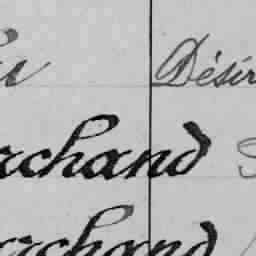 Désir
rchand
archand